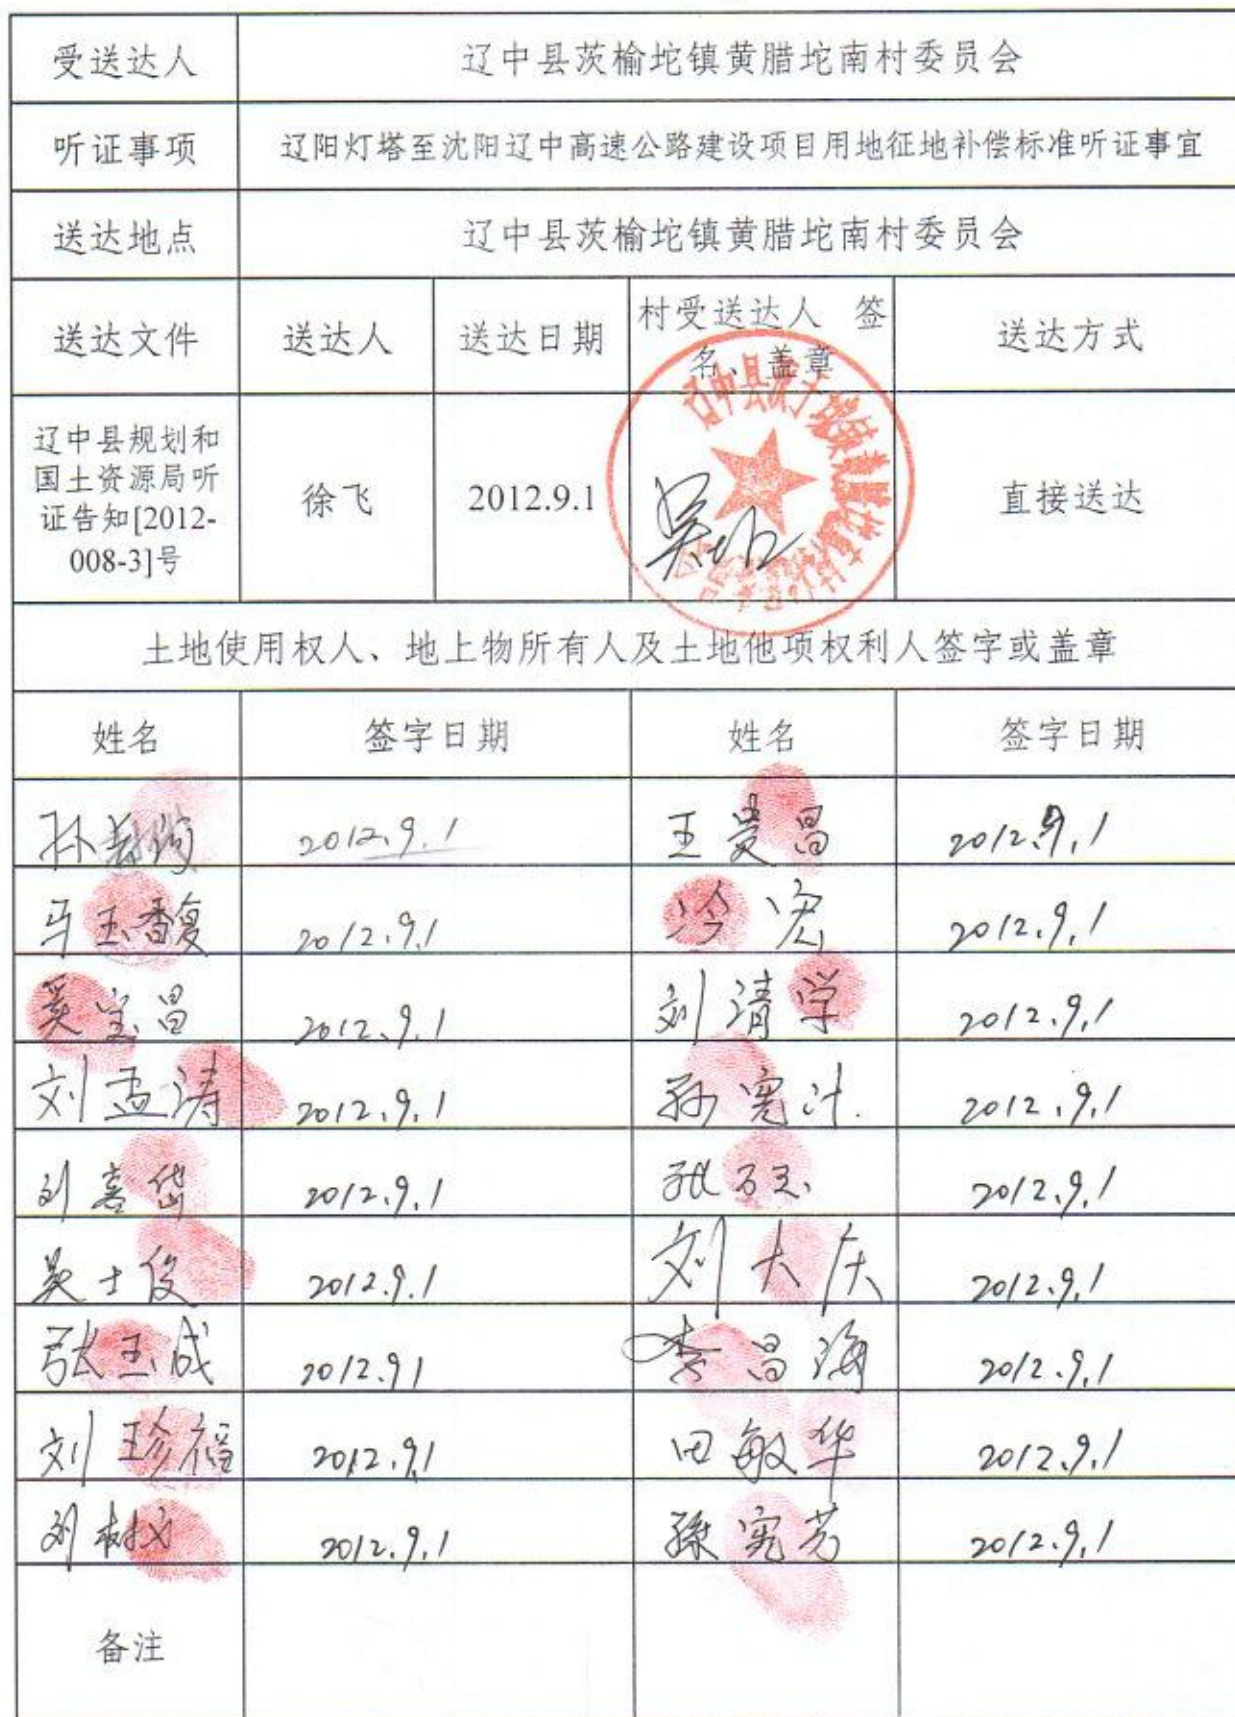 受送达人 辽中县茨榆坨镇黄腊坨南村委员会
听证事项 辽阳灯塔至沈阳辽中高速公路建设项目用地征地补偿标准听证事宜
送达地点 辽中县茨榆坨镇黄腊坨南村委员会
送达文件 送达人 送达日期 村受送达人 签名、盖章 送达方式
辽中县规划和
国土资源局听
证告知[2012-
008-3]号
徐飞 2012.9.1 直接送达
土地使用权人、地上物所有人及土地他项权利人签字或盖章
姓名 签字日期 姓名 签字日期
2012.9.1 王贵昌 2012.9.1
马玉馥 2012.9.1 冷宏 2012.9.1
吴宝昌 2012.9.1 刘清学 2012.9.1
刘孟涛 2012.9.1 孙宪汁 2012.9.1
刘喜岱 2012.9.1 张万 2012.9.1
吴士俊 2012.9.1 刘大庆 2012.9.1
张玉成 2012.91 李昌海 2012.9.1
刘珍福 2012.9.1 田敏华 2012.9.1
刘树文 2012.9.1 孫宪芳 2012.9.1
备注